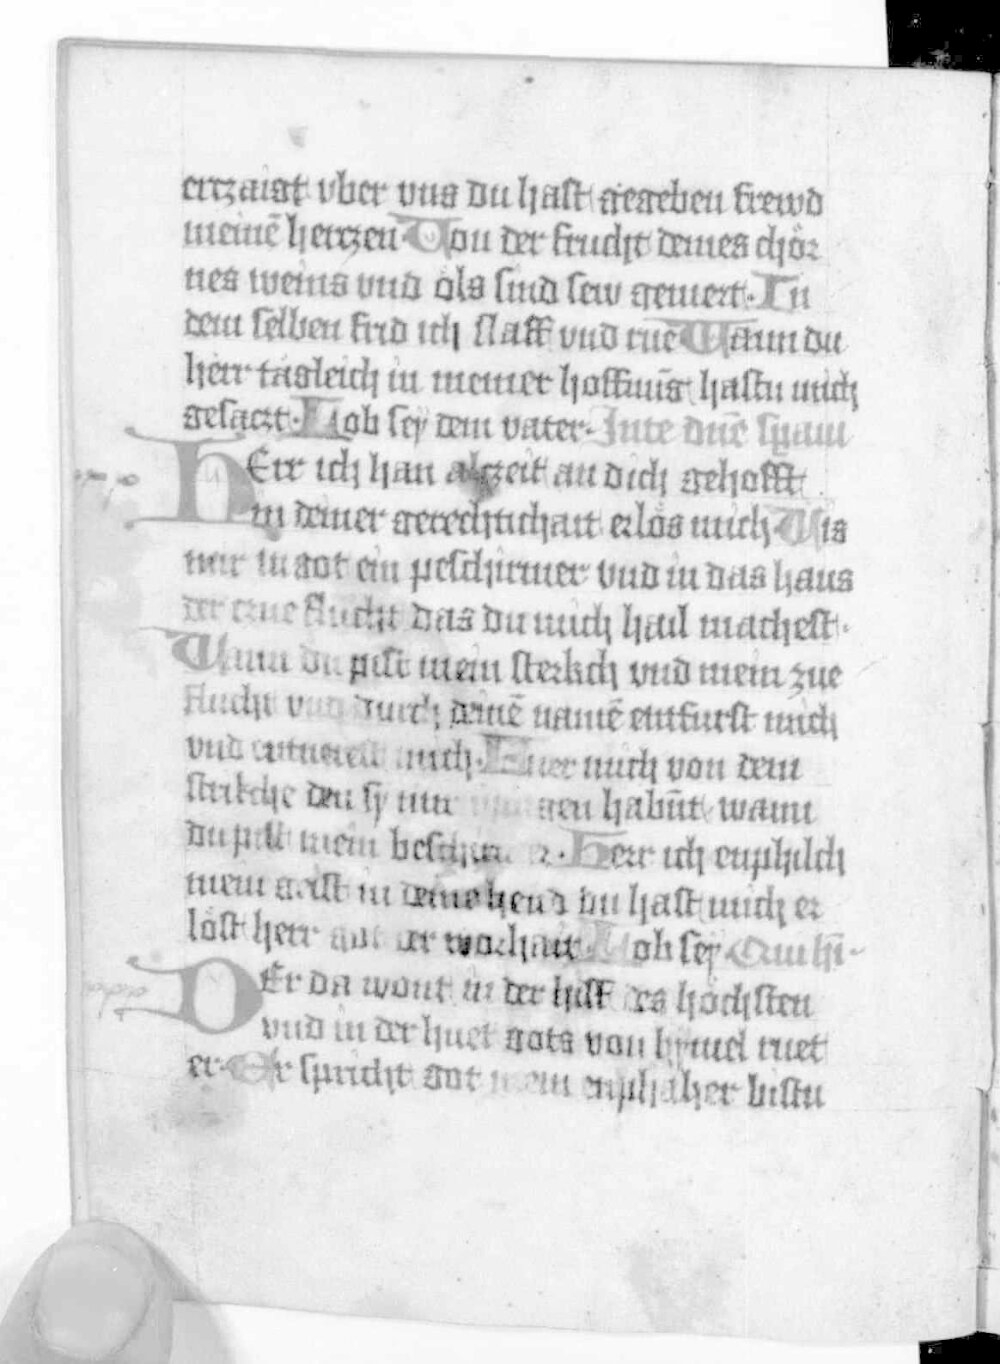 erczaigt vber vns Du hast gegeben frewd
meinē herczen Von der frucht deines chör
nes weins vnd öls sind sew gemert. In
dem selben frid ich slaff vnd rue Wann du
herr tägleich in meiner hoffnūg hastu mich
gesaczt. Lob sey dem vater. Inte dn̄e spaui
HErr ich han alczeit an dich gehofft
in deiner gerechtichait erlös mich Wis
mir in got ein peschirmer vnd in das haus
der czue flucht das du mich hail machest.
Wann du pist mein sterkch vnd mein zue
flucht vnd durch deinē namē entfurst mich
vnd mich. mich von dem
strikche den sy mir habn̄t wann
du pist mein beschirmer. Herr ich enphilch
mein geist in deine hend du hast mich er
löst herr got der worhait Lob sey Qui hī
DEr da wont in der hilff des höchsten
vnd in der huet gots von hymel ruet
er. Er spricht got mein enphaher bistu